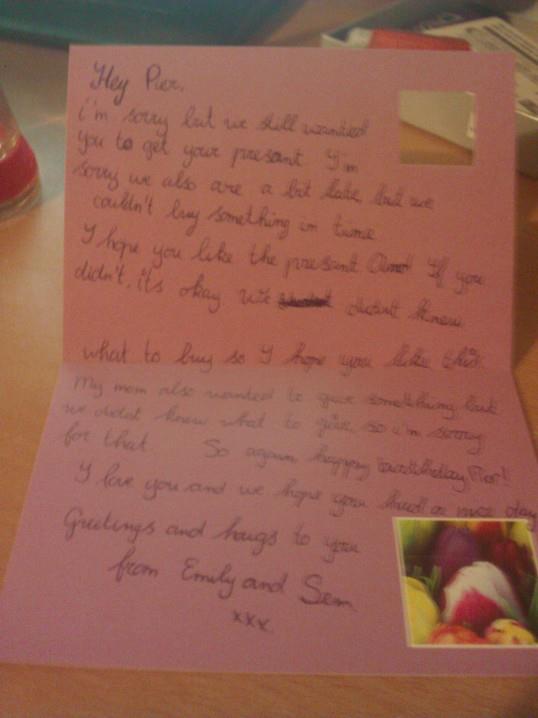 Hey Pier,
i'm sorry but we still wanted
you to get your present. I'm
sorry we also are a bit late, but we
couldn't buy something in time
I hope you like the present. And If you
didn't, it's okay we didn't knew
what to buy so I hope you like this.
My mom also wanted to give something but
we didnt knew what to give so i'm sorry
for that. So again happy birthday Pier!
I love you and we hope you had a nice day
Greetings and hugs to you
from Emily and Sem
xxx